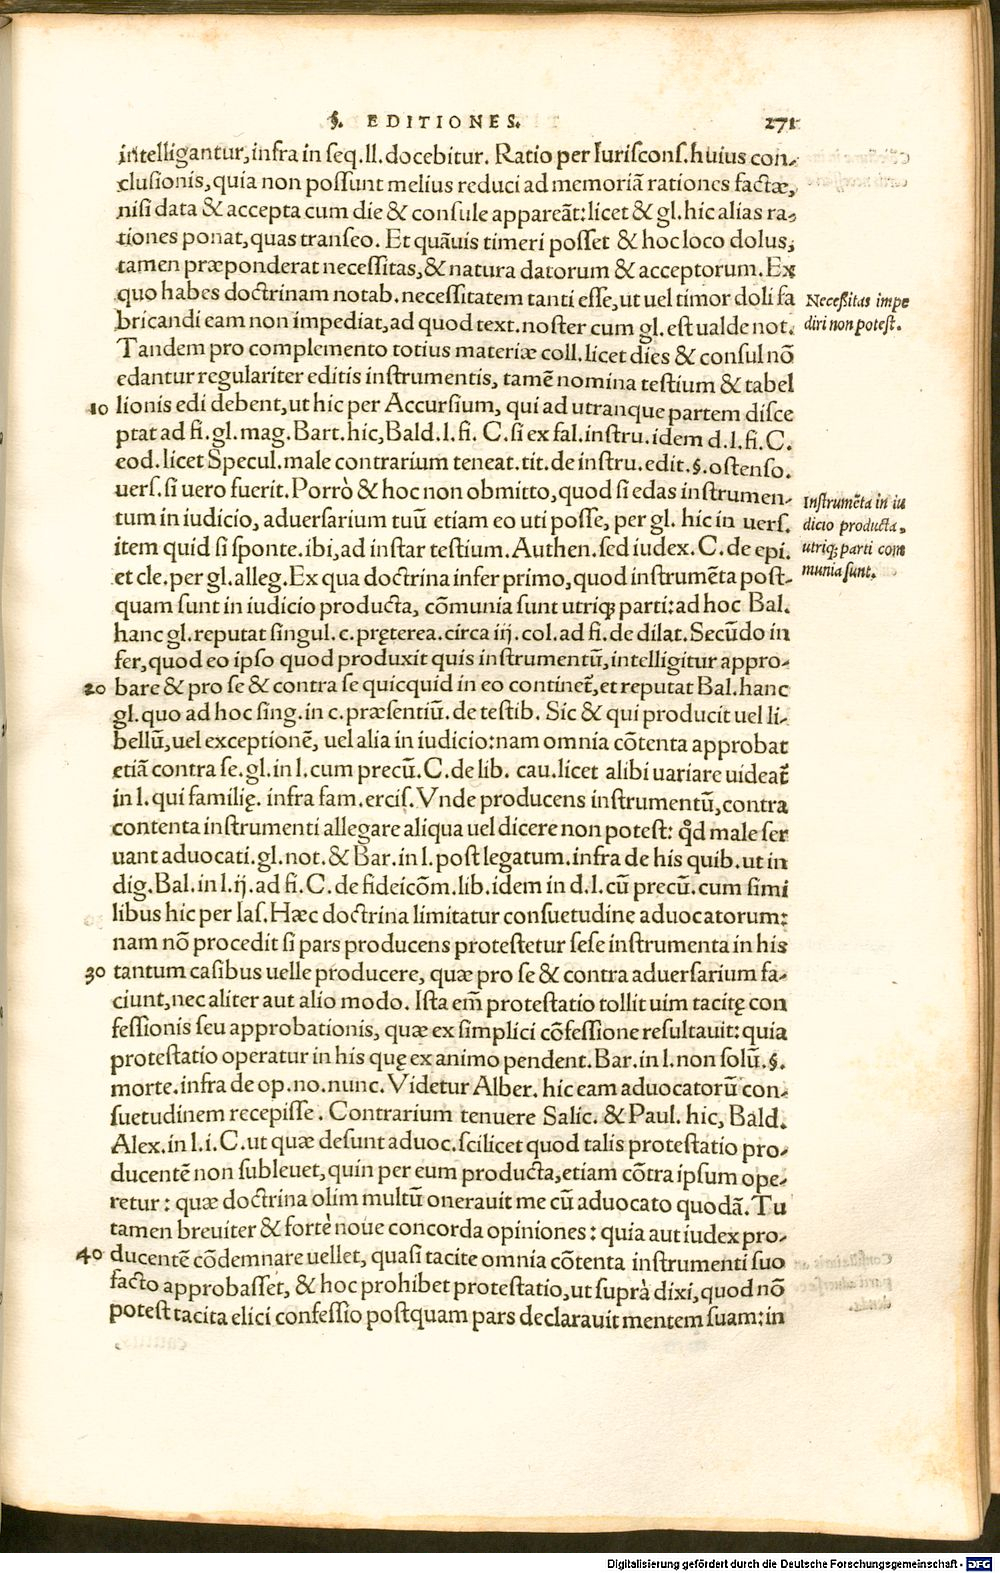 §. EDITIONES. 271
intelligantur, infra in seq. ll. docebitur. Ratio per Iuriscons. huius con-
clusionis, quia non possunt melius reduci ad memoriã rationes factæ,
nisi data & accepta cum die & consule appareãt: licet & gl. hic alias ra-
tiones ponat, quas transeo. Et quãuis timeri posset & hoc loco dolus,
tamen præponderat necessitas, & natura datorum & acceptorum. Ex
quo habes doctrinam notab. necessitatem tanti esse, ut uel timor doli fa
bricandi eam non impediat, ad quod text. noster cum gl. est ualde not.
Necessitas impe
diri non potest.
Tandem pro complemento totius materiæ coll. licet dies & consul nõ
edantur regulariter editis instrumentis, tamẽ nomina testium & tabel
10 lionis edi debent, ut hic per Accursium, qui ad utranque partem disce
ptat ad fi. gl. mag. Bart. hic, Bald. l. fi. C. si ex fal. instru. idem d. l. fi. C.
eod. licet Specul. male contrarium teneat. tit. de instru. edit. §. ostenso.
uers. si uero fuerit. Porrò & hoc non obmitto, quod si edas instrumen-
tum in iudicio, aduersarium tuũ etiam eo uti posse, per gl. hic in uers.
item quid si sponte. ibi, ad instar testium. Authen. sed iudex. C. de epi.
et cle. per gl. alleg. Ex qua doctrina infer primo, quod instrumẽta post-
Instrumẽta in iu
dicio producta,
utriq; parti com
munia sunt.
quam sunt in iudicio producta, cõmunia sunt utriq; parti: ad hoc Bal.
hanc gl. reputat singul. c. pręterea. circa iij. col. ad fi. de dilat. Secũdo in
fer, quod eo ipso quod produxit quis instrumentũ, intelligitur appro-
20 bare & pro se & contra se quicquid in eo continet̃, et reputat Bal. hanc
gl. quo ad hoc sing. in c. præsentiũ. de testib. Sic & qui producit uel li-
bellũ, uel exceptionẽ, uel alia in iudicio: nam omnia cõtenta approbat
etiã contra se. gl. in l. cum precũ. C. de lib. cau. licet alibi uariare uideat̃
in l. qui familię. infra fam. ercis. Vnde producens instrumentũ, contra
contenta instrumenti allegare aliqua uel dicere non potest: qd̃ male ser
uant aduocati. gl. not. & Bar. in l. post legatum. infra de his quib. ut in
dig. Bal. in l. ij. ad fi. C. de fideicõm. lib. idem in d. l. cũ precũ. cum simi
libus hic per Ias. Hæc doctrina limitatur consuetudine aduocatorum:
nam nõ procedit si pars producens protestetur sese instrumenta in his
30 tantum casibus uelle producere, quæ pro se & contra aduersarium fa-
ciunt, nec aliter aut alio modo. Ista em̃ protestatio tollit uim tacitę con
fessionis seu approbationis, quæ ex simplici cõfessione resultauit: quia
protestatio operatur in his quę ex animo pendent. Bar. in l. non solũ. §.
morte. infra de op. no. nunc. Videtur Alber. hic eam aduocatorũ con-
suetudinem recepisse. Contrarium tenuere Salic. & Paul. hic, Bald.
Alex. in l. i. C. ut quæ desunt aduoc. scilicet quod talis protestatio pro-
ducentẽ non subleuet, quin per eum producta, etiam cõtra ipsum ope-
retur: quæ doctrina olim multũ onerauit me cũ aduocato quodã. Tu
tamen breuiter & fortè noue concorda opiniones: quia aut iudex pro-
40 ducentẽ cõdemnare uellet, quasi tacite omnia cõtenta instrumenti suo
facto approbasset, & hoc prohibet protestatio, ut suprà dixi, quod nõ
potest tacita elici confessio postquam pars declarauit mentem suam: in
Digitalisierung gefördert durch die Deutsche Forschungsgemeinschaft - DFG